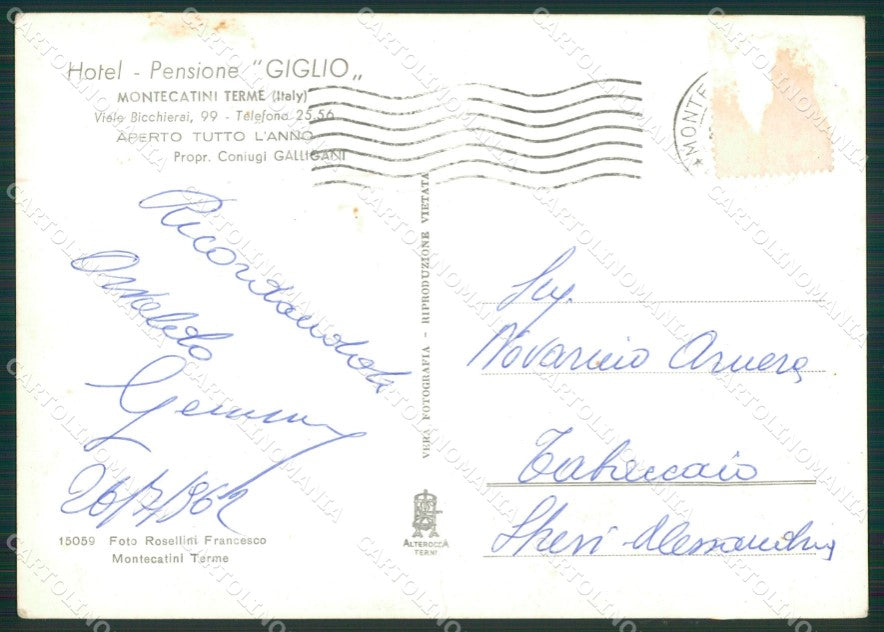 Hotel - Pensione "GIGLIO„
MONTECATINI TERME (Italy)
Viale Bicchierai, 99 - Telefono 25.56
APERTO TUTTO L'ANNO
Propr. Coniugi GALLIGANI
*MONTE
Ricordandola
26/7/962
15059 Foto Rosellini Francesco
Montecatini Terme
VERA FOTOGRAFIA - RIPRODUZIONE VIETATA
ALTEROCCA
TERNI
Sig.
Novarino
Tabaccaio
Alessandria
CARTOLINOMANIA